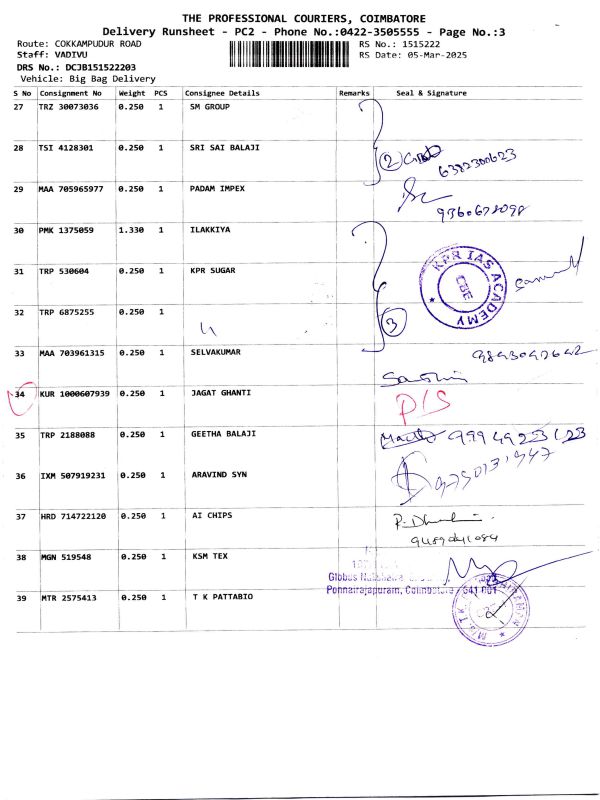 THE PROFESSIONAL COURIERS, COIMBATORE
Delivery Runsheet - PC2 - Phone No.:0422-3505555 - Page No.:3
Route: COKKAMPUDUR ROAD RS No.: 1515222
Staff: VADIVU RS Date: 05-Mar-2025
DRS No.: DCJB151522203
Vehicle: Big Bag Delivery
S No Consignment No Weight PCS Consignee Details Remarks Seal & Signature
27 TRZ 30073036 0.250 1 SM GROUP
28 TSI 4128301 0.250 1 SRI SAI BALAJI
2 6382300623
29 MAA 705965977 0.250 1 PADAM IMPEX
9360678098
30 PMK 1375059 1.330 1 ILAKKIYA
KPR IAS ACADEMY
CBE
31 TRP 530604 0.250 1 KPR SUGAR
32 TRP 6875255 0.250 1
3
33 MAA 703961315 0.250 1 SELVAKUMAR
34 KUR 1000607939 0.250 1 JAGAT GHANTI P/S
35 TRP 2188088 0.250 1 GEETHA BALAJI 9994923123
36 IXM 507919231 0.250 1 ARAVIND SYN
37 HRD 714722120 0.250 1 AI CHIPS
38 MGN 519548 0.250 1 KSM TEX
Globus
Ponnairajapuram, Coimbatore - 641 001
39 MTR 2575413 0.250 1 T K PATTABIO